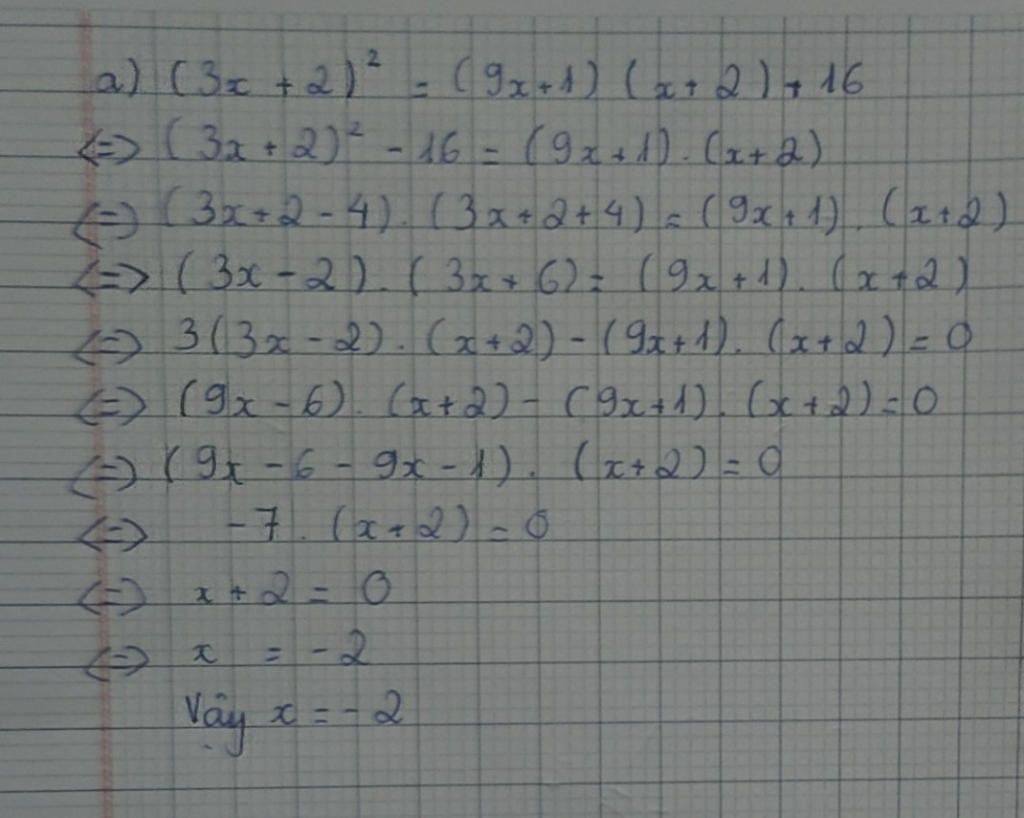 a) (3x + 2)² = (9x+1) (x+2) + 16
<=> (3x+2)² - 16 = (9x+1) . (x+2)
<=> (3x+2-4) . (3x+2+4) = (9x+1) . (x+2)
<=> (3x-2) . (3x+6) = (9x+1) . (x+2)
<=> 3(3x-2) . (x+2) - (9x+1) . (x+2) = 0
<=> (9x-6) . (x+2) - (9x+1) . (x+2) = 0
<=> (9x-6-9x-1) . (x+2) = 0
<=> -7 . (x+2) = 0
<=> x+2 = 0
<=> x = -2
Vậy x = -2